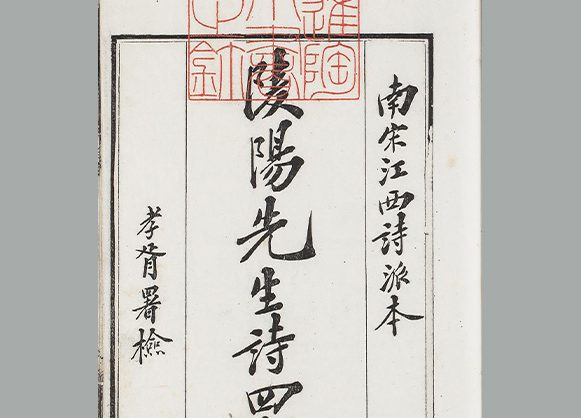 南宋江西詩派本
陵陽先生詩四
孝胥署檢